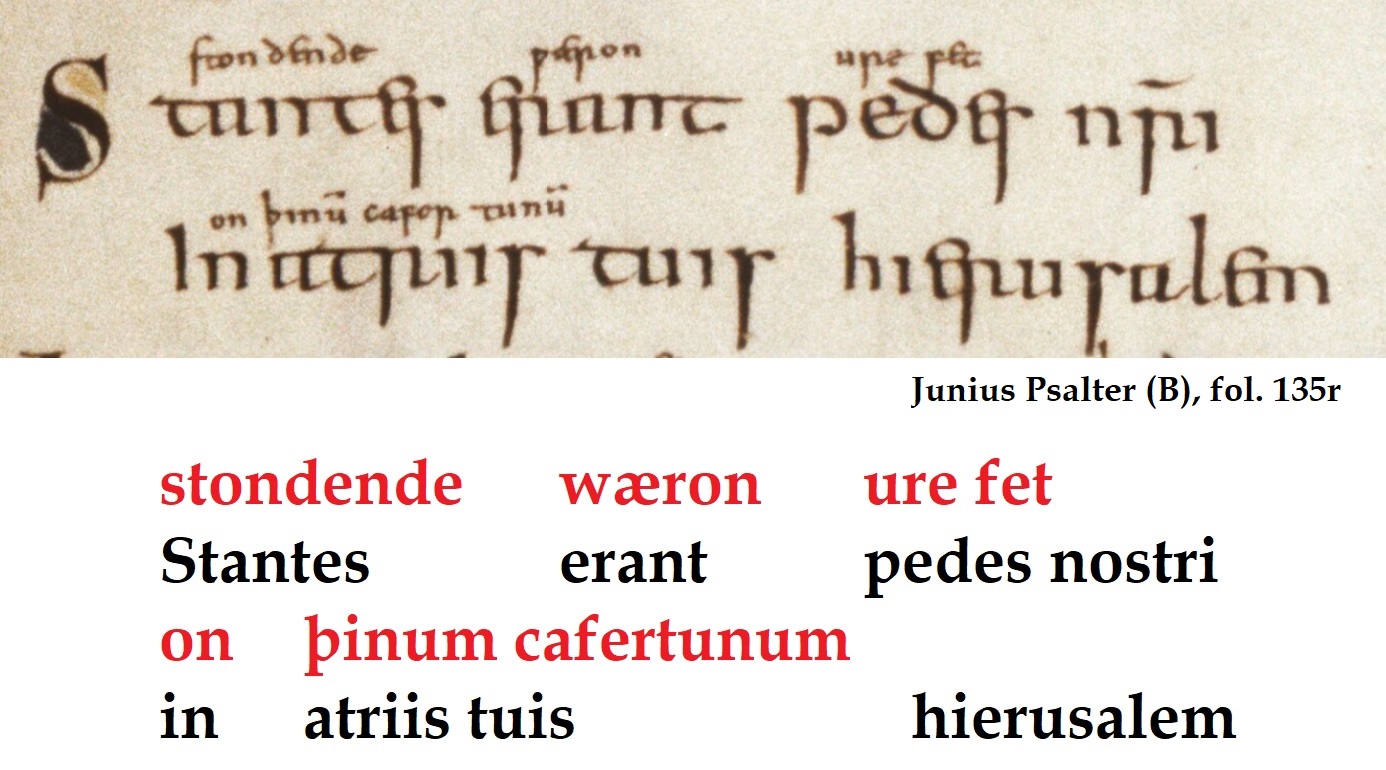 stondende ƿæron ure fet
Stantes erant pedes nr̄i
on þinū cafor tunū
In atriis tuis hierusalem
Junius Psalter (B), fol. 135r
stondende wæron ure fet
Stantes erant pedes nostri
on þinum cafertunum
in atriis tuis hierusalem